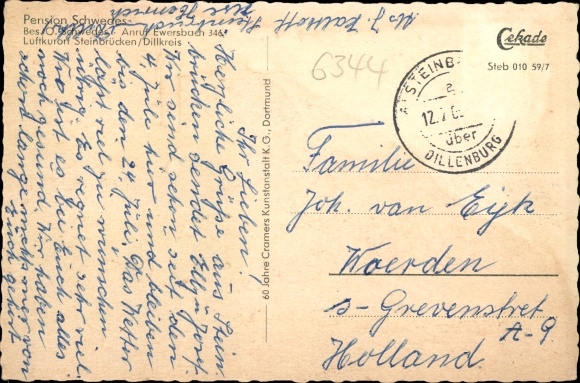 Pension Schwedes
Bes. O. Schwedes · Anruf Ewersbach 346
Luftkurort Steinbrücken/Dillkreis
Ihr Lieben!
Herzliche Grüße aus Stein
brücken sendet Elly u. Jost.
Wir sind schon seit dem
4 Juli hier und bleiben
bis den 24. Juli. Das Wetter
läßt viel zu wünschen
übrig. Es regnet sehr viel.
Wie geht es Euch alles
noch gesund. Wir haben
schon lange nichts mehr von
Euch
60 Jahre Cramers Kunstanstalt K.G., Dortmund
Cekade
Steb 010 59/7
6344
STEINB
a
12.7.6
über
DILLENBURG
Familie
Joh. van Eijk
Woerden
s-Grevenstret
A-9
Holland